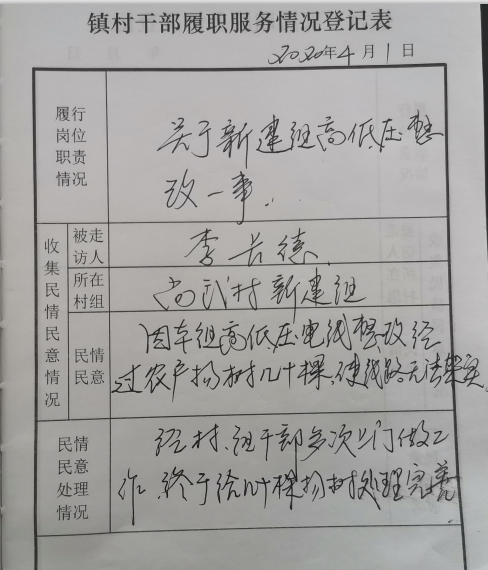 镇村干部履职服务情况登记表
2020年4月1日
履行
岗位
职责
情况
关于新建组高低压整
改一事.
收集民情民意情况
被走
访人
李长德
所在
村组
尚武村新建组
民情
民意
因本组高低压电线整改经
过农户杨树几十棵,使线路无法架实
民情
民意
处理
情况
经村、组干部多次上门做工
作,终于给几十棵杨树处理完善